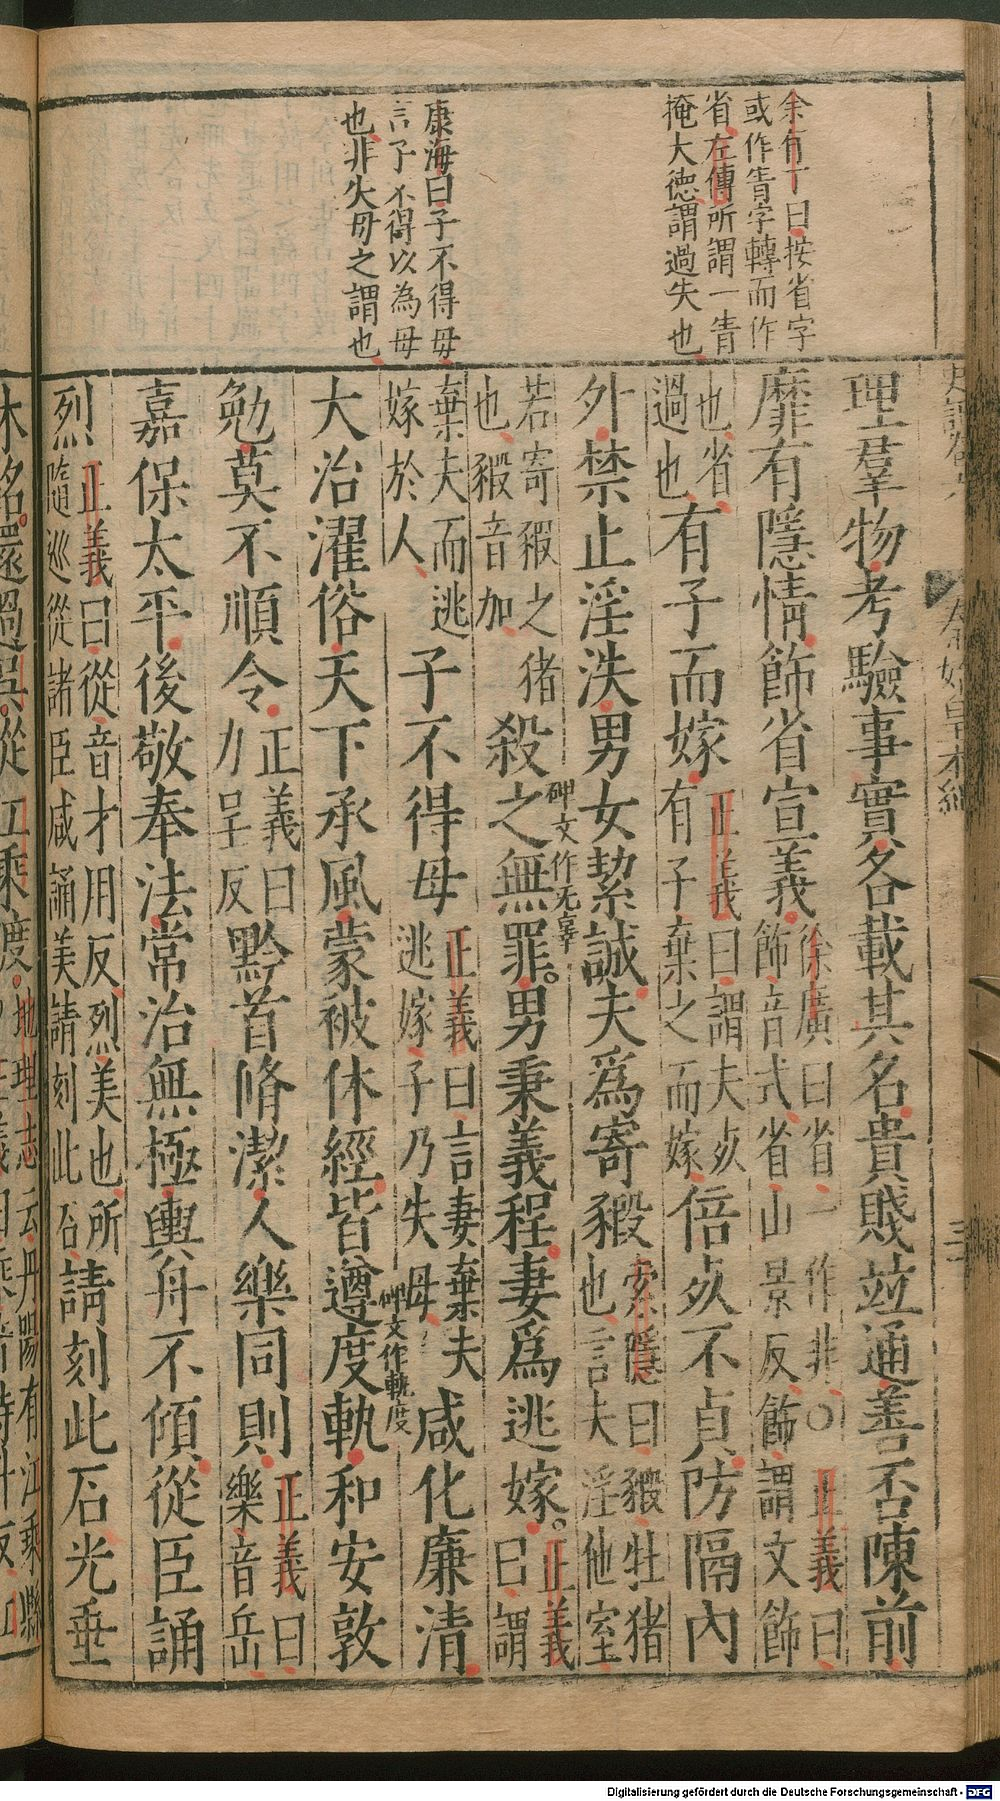 余有丁曰按省字
或作眚字轉而作
省左傳所謂一眚
掩大德謂過失也
康海曰子不得毋
言子不得以為母
也非失母之謂也
理羣物考驗事實各載其名貴賤竝通善否陳前
靡有隱情飾省宣義徐廣曰省一作非〇正義曰飾音式省山景反飾謂文飾
也省過也有子而嫁正義曰謂夫死有子棄之而嫁倍死不貞防隔內
外禁止淫泆男女絜誠夫爲寄豭索隱曰豭牡猪也言夫淫他室
若寄豭之猪也豭音加殺之無罪碑文作无辜男秉義程妻爲逃嫁正義曰謂
棄夫而逃嫁於人子不得母正義曰言妻棄夫逃嫁子乃失母咸化廉清
大治濯俗天下承風蒙被休經皆遵度軌碑文作軌度和安敦
勉莫不順令正義曰力呈反黔首脩潔人樂同則正義曰樂音岳
嘉保太平後敬奉法常治無極輿舟不傾從臣誦
烈正義曰從音才用反烈美也所隨巡從諸臣咸誦美請刻此石請刻此石光垂
休銘還過吳從江乘度地理志云丹陽有江乘縣
Digitalisierung gefördert durch die Deutsche Forschungsgemeinschaft - DFG